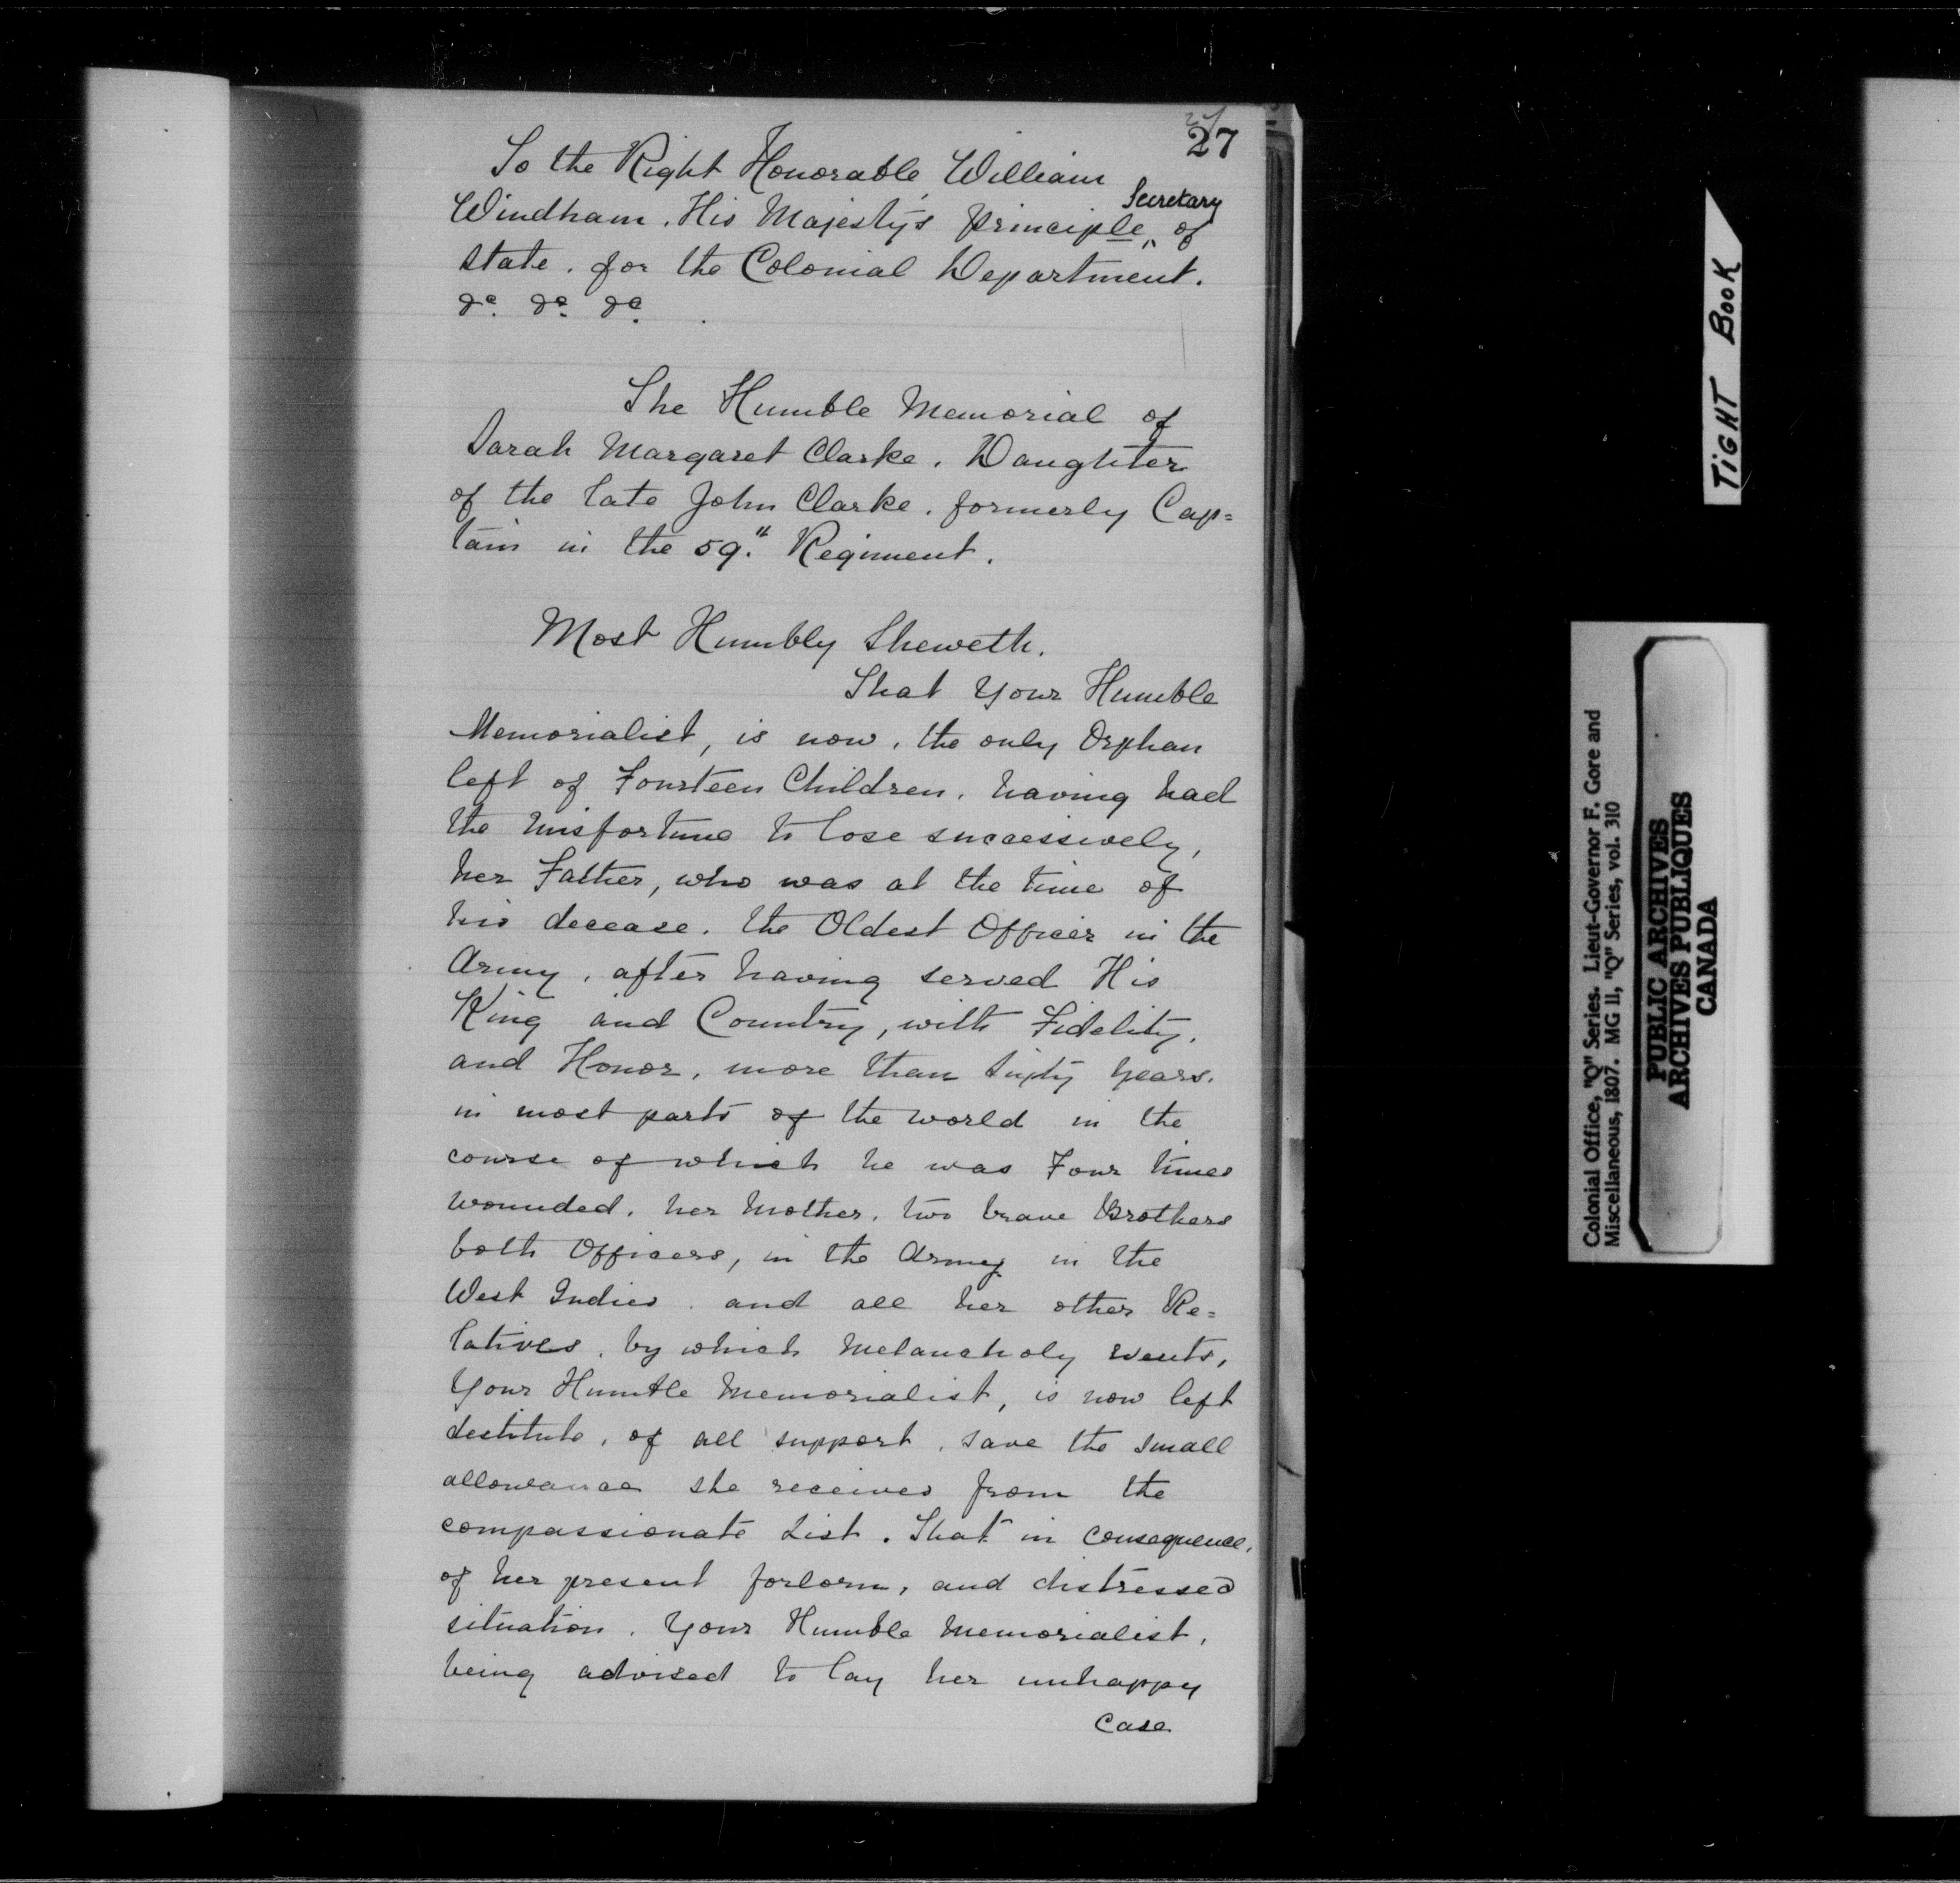 27
To the Right Honorable William
Windham. His Majesty's Principle ^ Secretary of
State. for the Colonial Department.
&c. &c. &c.
The Humble Memorial of
Sarah Margaret Clarke. Daughter
of the late John Clarke. formerly Cap=
tain in the 59.th Regiment.
Most Humbly Sheweth.
That Your Humble
Memorialist, is now, the only Orphan
left of Fourteen Children, having had
the misfortune to lose successively,
her Father, who was at the time of
his decease. the Oldest Officer in the
Army, after having served His
King and Country, with Fidelity,
and Honor, more than Sixty Years.
in most parts of the world in the
course of which he was Four times
wounded, her Mother, two brave Brothers
both Officers, in the Army in the
West Indies. and all her other Re=
latives, by which melancholy events,
Your Humble Memorialist, is now left
destitute, of all support, save the small
allowance she receives from the
compassionate List. That in consequence,
of her present forlorn, and distressed
situation. Your Humble Memorialist,
being advised to lay her unhappy
case
TIGHT BOOK
Colonial Office, "Q" Series. Lieut-Governor F. Gore and
Miscellaneous, 1807. MG 11, "Q" Series, vol. 310
PUBLIC ARCHIVES
ARCHIVES PUBLIQUES
CANADA